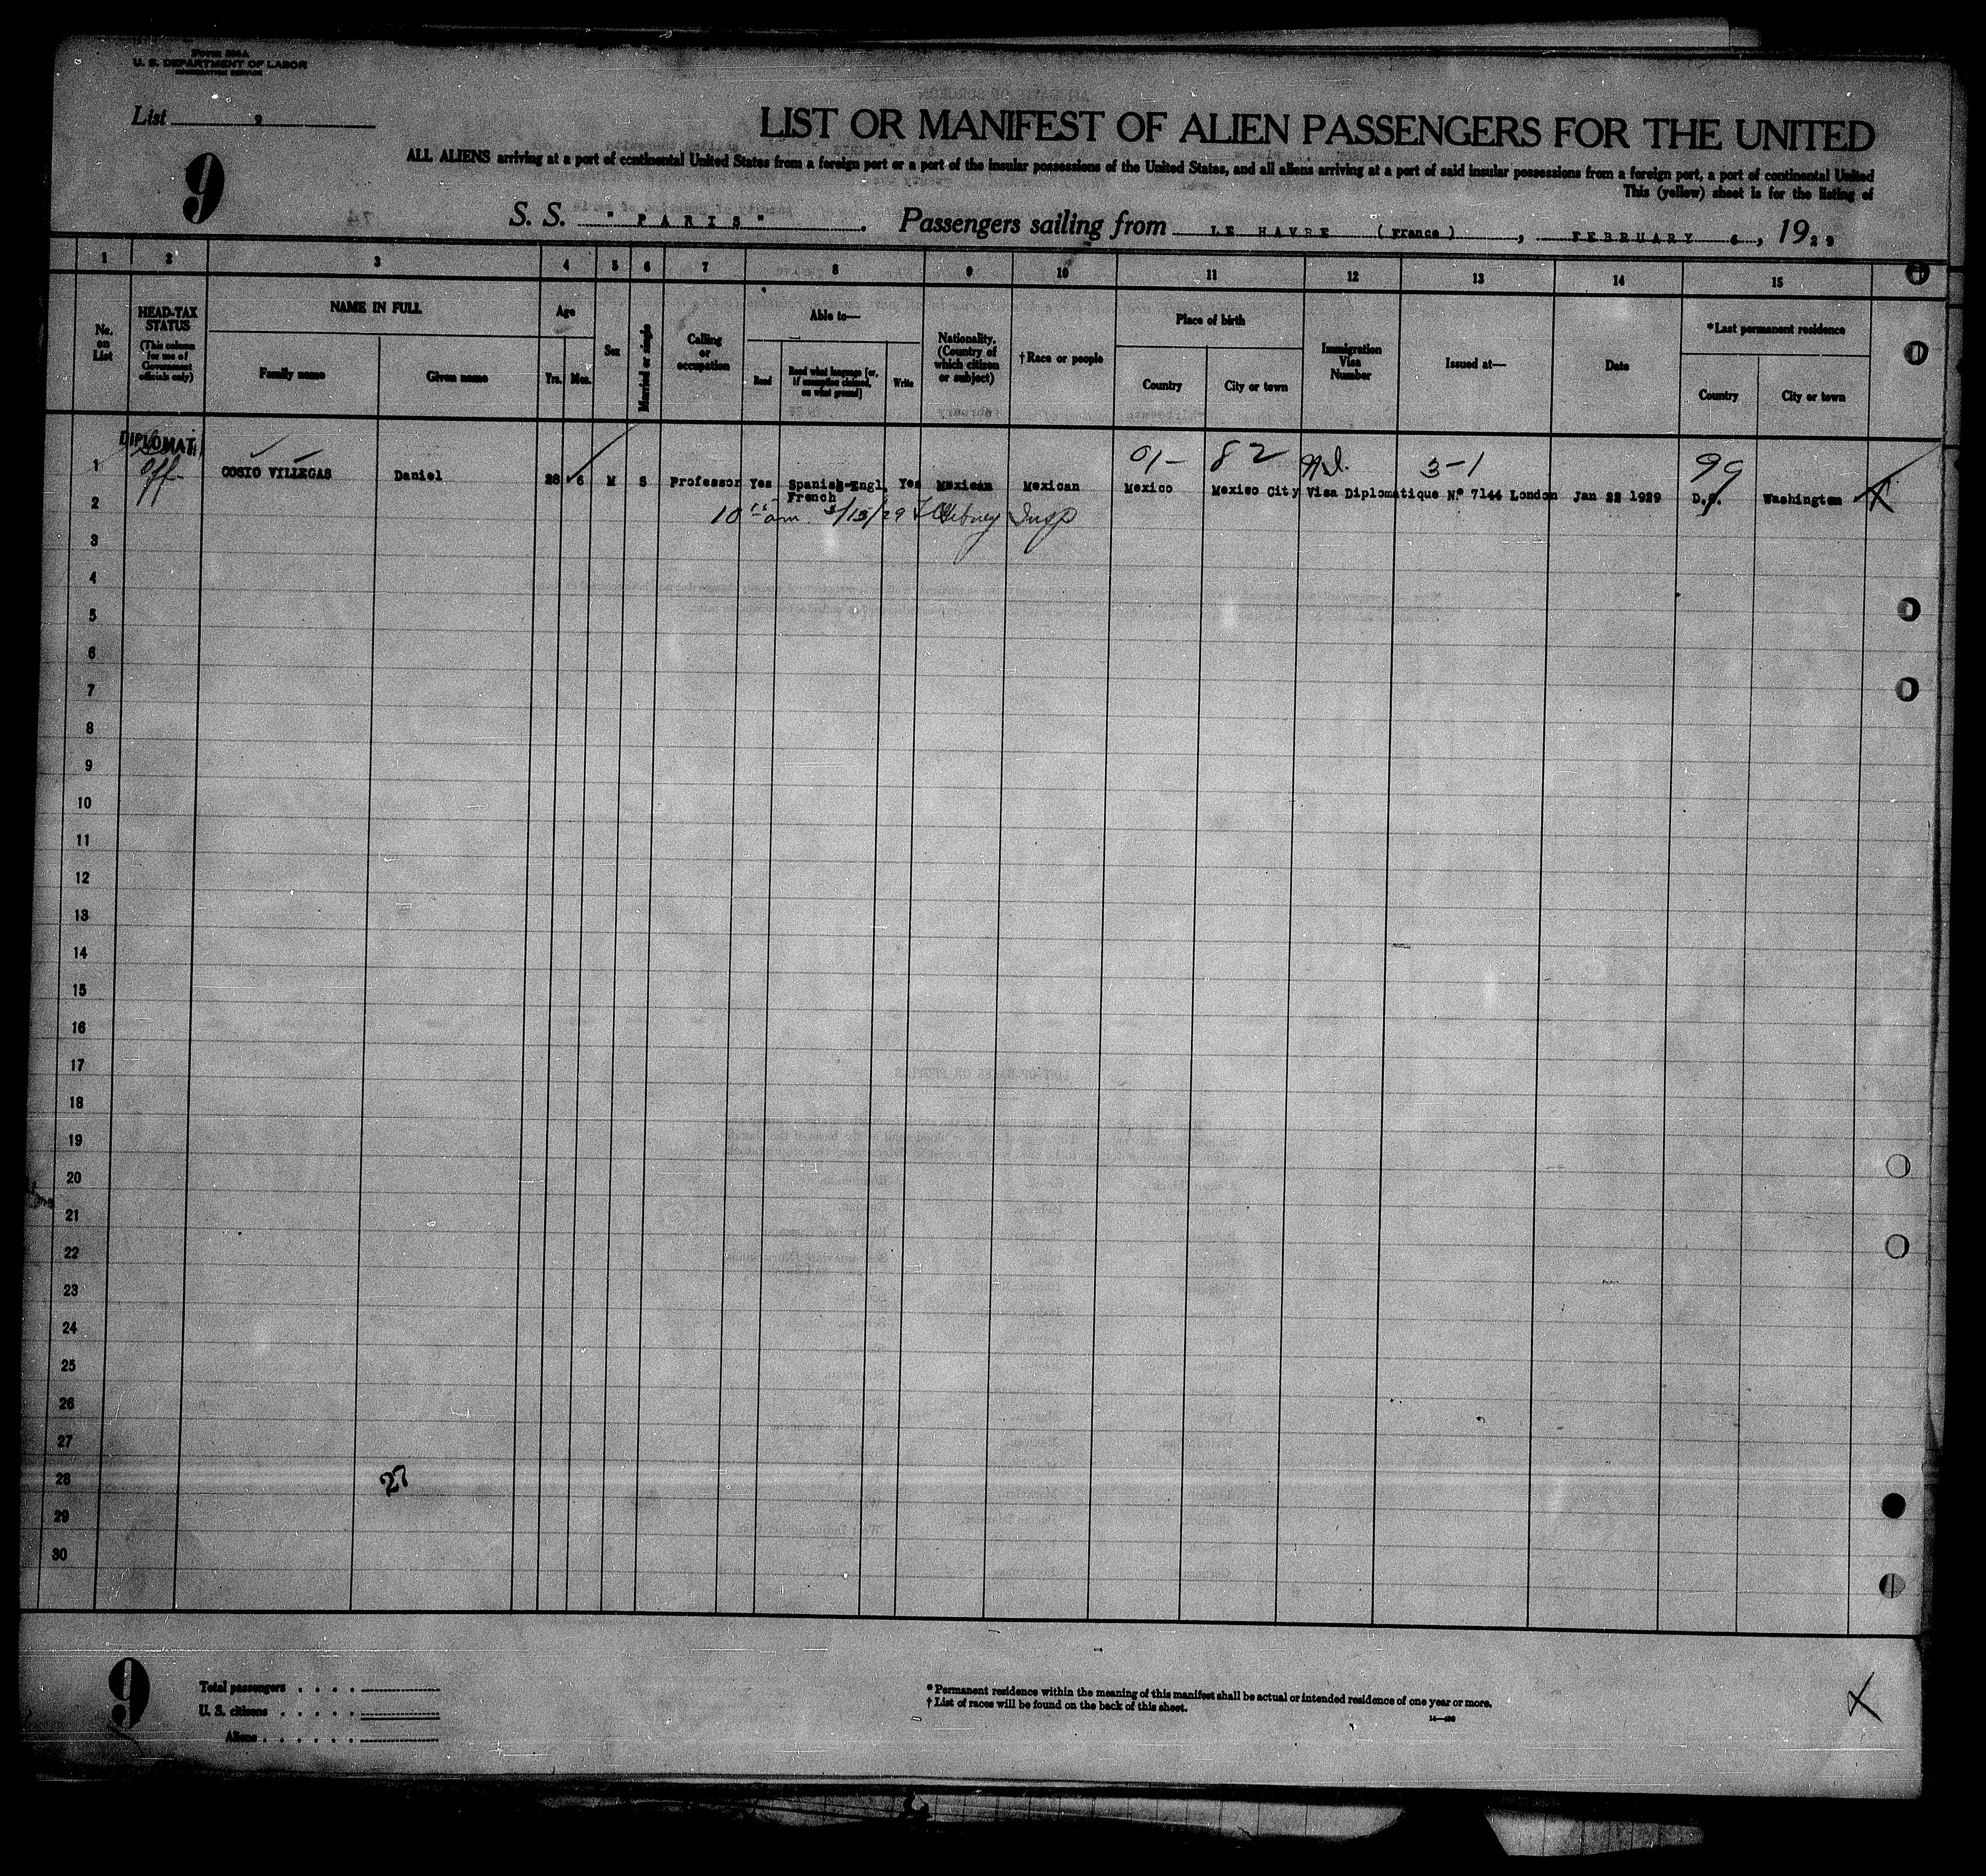 Form 500A
U. S. DEPARTMENT OF LABOR
IMMIGRATION SERVICE
List 9
9
LIST OR MANIFEST OF ALIEN PASSENGERS FOR THE UNITED
ALL ALIENS arriving at a port of continental United States from a foreign port or a port of the insular possessions of the United States, and all aliens arriving at a port of said insular possessions from a foreign port, a port of continental United
This (yellow) sheet is for the listing of
S. S. " PARIS " . Passengers sailing from LE HAVRE (France) , FEBRUARY 6 , 1929
1 2 3 4 5 6 7 8 9 10 11 12 13 14 15
No. on List
HEAD-TAX STATUS (This column for use of Government officials only)
NAME IN FULL
Family name
Given name
Age
Yrs. Mos.
Sex
Married or single
Calling or occupation
Able to—
Read
Read what language [or, if exemption claimed, on what ground]
Write
Nationality. (Country of which citizen or subject)
†Race or people
Place of birth
Country
City or town
Immigration Visa Number
Issued at—
Date
*Last permanent residence
Country
City or town
DIPLOMAT
Off
01- 82 3-1 99
1 COSIO VILLEGAS Daniel 28 6 M S Professor Yes Spanish-Engl. French Yes Mexican Mexican Mexico Mexico City Visa Diplomatique Nº 7144 London Jan 22 1929 D.C. Washington
2
10 15 am
3
4
5
6
7
8
9
10
11
12
13
14
15
16
17
18
19
20
21
22
23
24
25
26
27
28
27
29
30
9
Total passengers
U. S. citizens
Aliens
* Permanent residence within the meaning of this manifest shall be actual or intended residence of one year or more.
† List of races will be found on the back of this sheet.
X